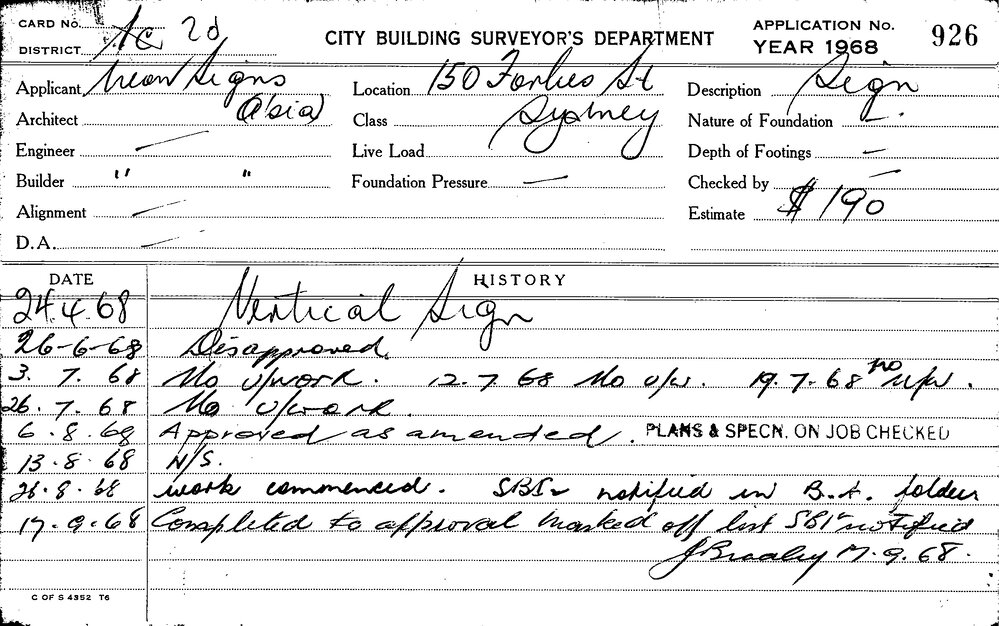 CARD No. Ac 2d
CITY BUILDING SURVEYOR'S DEPARTMENT
APPLICATION No. 926
YEAR 1968
DISTRICT
Applicant Neon Signs
Location 150 Forbes St
Description Sign
Architect Asia
Class Sydney
Nature of Foundation —.
Engineer —
Live Load
Depth of Footings —
Builder " "
Foundation Pressure —
Checked by —
Alignment —
Estimate $190
D.A. —
DATE HISTORY
24.4.68 Vertical Sign
26-6-68 Disapproved.
3. 7. 68 No u/work. 12.7.68 No u/w. 19.7.68 no u/w.
26.7.68 No u/work.
6.8.68 Approved as amended. PLANS & SPECN. ON JOB CHECKED
13.8.68 N/S.
26.8.68 work commenced. SBI notified in B.A. folder
17.9.68 Completed to approval marked off list SBI notified
17.9.68.
C OF S 4352 T6